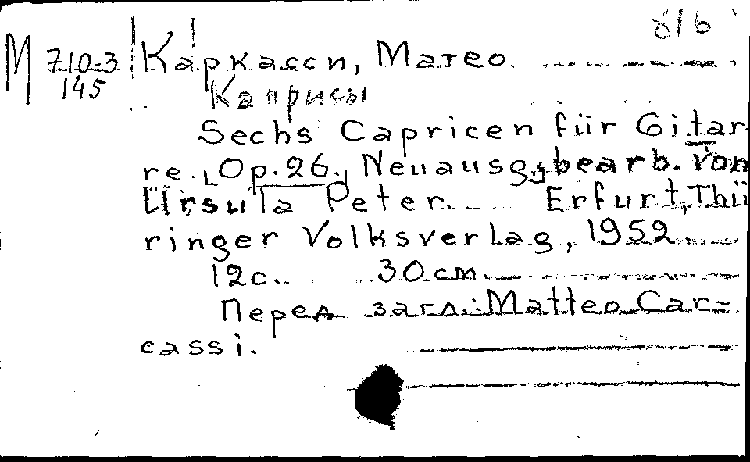 816
М 710-3 Каркасси, Матео
145 Каприсы
Sechs Capricen für Gitar
re. Op. 26. Neuausg., bearb. von
Ursula Peter. Erfurt, Thü
ringer Volksverlag, 1952
12 с. 30 см.
Перед загл.: Matteo Car-
cassi.